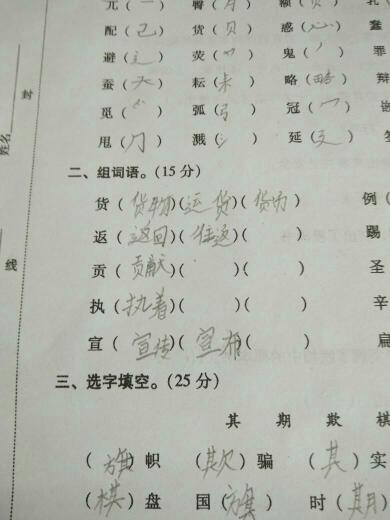 兀(一) 臀(月) 额(页) 乳
配(己) 货(贝) 惑(心) 蠢
避(辶) 荧(艹) 鬼(丿) 罪
蚕(天) 耘(耒) 略(略) 辩
觅(爫) 弧(弓) 冠(冖)
甩(冂) 溅(氵) 延(廴)
姓名
封
线
二、组词语。(15分)
货(货物)(运货)(货物) 例
返(返回)(往返)( ) 踢
贡(贡献)( )( ) 圣
执(执着)( )( ) 辛
宣(宣传)(宣布)( ) 扁
三、选字填空。(25分)
其 期 欺 棋
(旗)帜 (欺)骗 (其)实
(棋)盘 国(旗) 时(期)